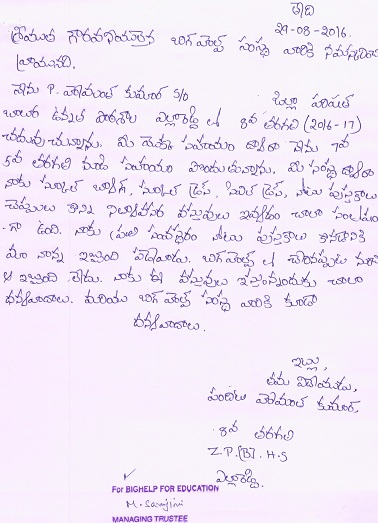 తేది
29-08-2016.
శ్రీయుత గౌరవనీయులైన బిగ్ హెల్ప్ సంస్థ వారికి నమస్కరించి
వ్రాయునది.
నేను P. హేమంత్ కుమార్ S/o జిల్లా పరిషత్
బాలుర ఉన్నత పాఠశాల ఎల్లారెడ్డి లో 8వ తరగతి (2016-17)
చదువు చున్నాను. మీ యొక్క సహాయం ద్వారా నేను
5వ తరగతి నుండి సహాయం పొందుతున్నాను. మీ సంస్థ ద్వారా
నాకు స్కూల్ బ్యాగ్, స్కూల్ డ్రెస్, సివిల్ డ్రెస్, నోటు పుస్తకాలు
చెప్పులు కొన్ని నిత్యావసర వస్తువులు ఇవ్వడం చాలా సంతోషం
గా ఉంది. నాకు ప్రతి సంవత్సరం నోటు పుస్తకాలు కొనడానికి
మా నాన్న ఇబ్బంది పడేవాడు. బిగ్ హెల్ప్ లో చేరినప్పటి నుండి
ఆ ఇబ్బంది లేదు. నాకు ఈ వస్తువులు ఇస్తున్నందుకు చాలా
ధన్యవాదాలు. మరియు బిగ్ హెల్ప్ సంస్థ వారికి కూడా
ధన్యవాదాలు.
ఇట్లు,
తమ విధేయుడు,
హేమంత్ కుమార్,
8వ తరగతి
Z.P.(B).H.S
ఎల్లారెడ్డి.
For BIGHELP FOR EDUCATION
M. Sarojini
MANAGING TRUSTEE